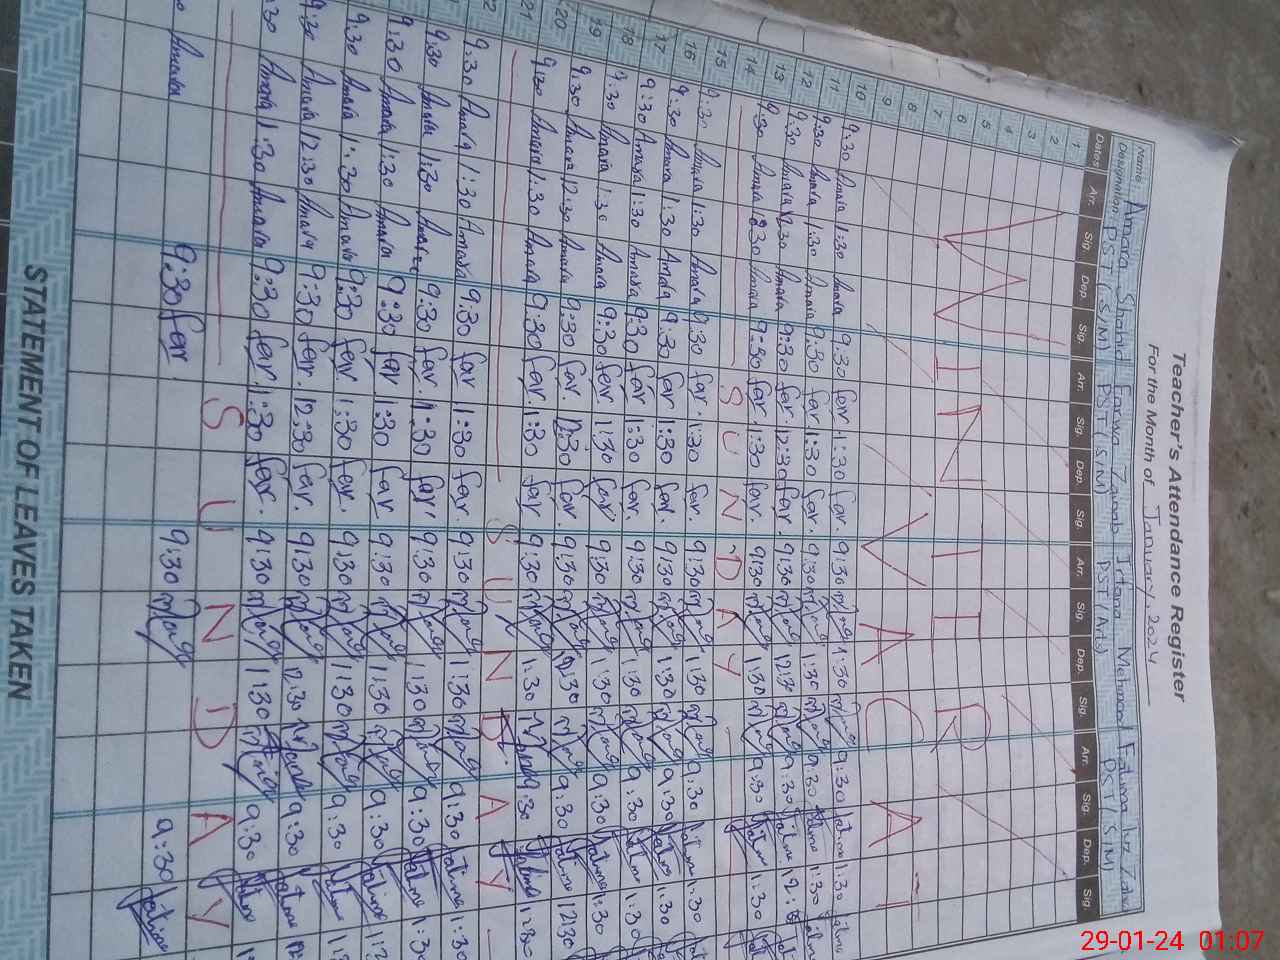 Teacher's Attendance Register
For the Month of January. 2024
Name: Amara Shahid Farwa Zainab Irtana Mehmood Fatima Luz Zahra
Designation: PST (S/M) PST (S/M) PST (Arts) PST (S.M)
Dates Arr. Sig. Dep. Sig. Arr. Sig. Dep. Sig. Arr. Sig. Dep. Sig. Arr. Sig. Dep. Sig.
1
2
3
4
5
6
7 WINTER
8
9 VACATI
10
11 9:30 Amara 1:30 Amara 9:30 far 1:30 far. 9:30 1:30 9:30 Fatima 1:30 Fatima
12 9:30 Amara 1:30 Amara 9:30 far 1:30 far. 9:30 1:30 9:30 Fatima 1:30 Fatima
13 9:30 Amara 12:30 Amara 9:30 far 12:30 far. 9:30 12:30 9:30 Fatima
14 9:30 Amara 1:30 Amara 9:30 far. 1:30 far. 9:30 1:30 9:30 Fatima 1:30
15 SUNDAY
16 9:30 Amara 1:30 Amara 9:30 far. 1:30 far. 9:30 1:30 9:30 Fatima 1:30
17 9:30 Amara 1:30 Amara 9:30 far 1:30 far. 9:30 1:30 9:30 Fatima 1:30
18 9:30 Amara 1:30 Amara 9:30 far 1:30 far. 9:30 1:30 9:30 Fatima 1:30
19 9:30 Amara 1:30 Amara 9:30 far 1:30 far 9:30 1:30 9:30 Fatima 1:30
20 9:30 Amara 12:30 Amara 9:30 far. 12:30 far. 9:30 12:30 9:30 Fatima 12:30
21 9:30 Amara 1:30 Amara 9:30 far. 1:30 far 9:30 1:30 9:30 Fatima 1:30
SUNDAY
9:30 Amara 1:30 Amara 9:30 far 1:30 far. 9:30 1:30 9:30 Fatima 1:30
9:30 Amara 1:30 Amara 9:30 far 1:30 far. 9:30 1:30 9:30 Fatima 1:30
9:30 Amara 1:30 Amara 9:30 far 1:30 far 9:30 1:30 9:30 Fatima
9:30 Amara 1:30 Amara 9:30 far. 1:30 far. 9:30 1:30 9:30 Fatima
9:30 Amara 12:30 Amara 9:30 far. 12:30 far. 9:30 12:30 9:30 Fatima
Amara 1:30 Amara 9:30 far. 1:30 far. 9:30 1:30 9:30 Fatima
SUNDAY
Amara 9:30 far. 9:30 9:30 Fatima
STATEMENT OF LEAVES TAKEN
29-01-24 01:07